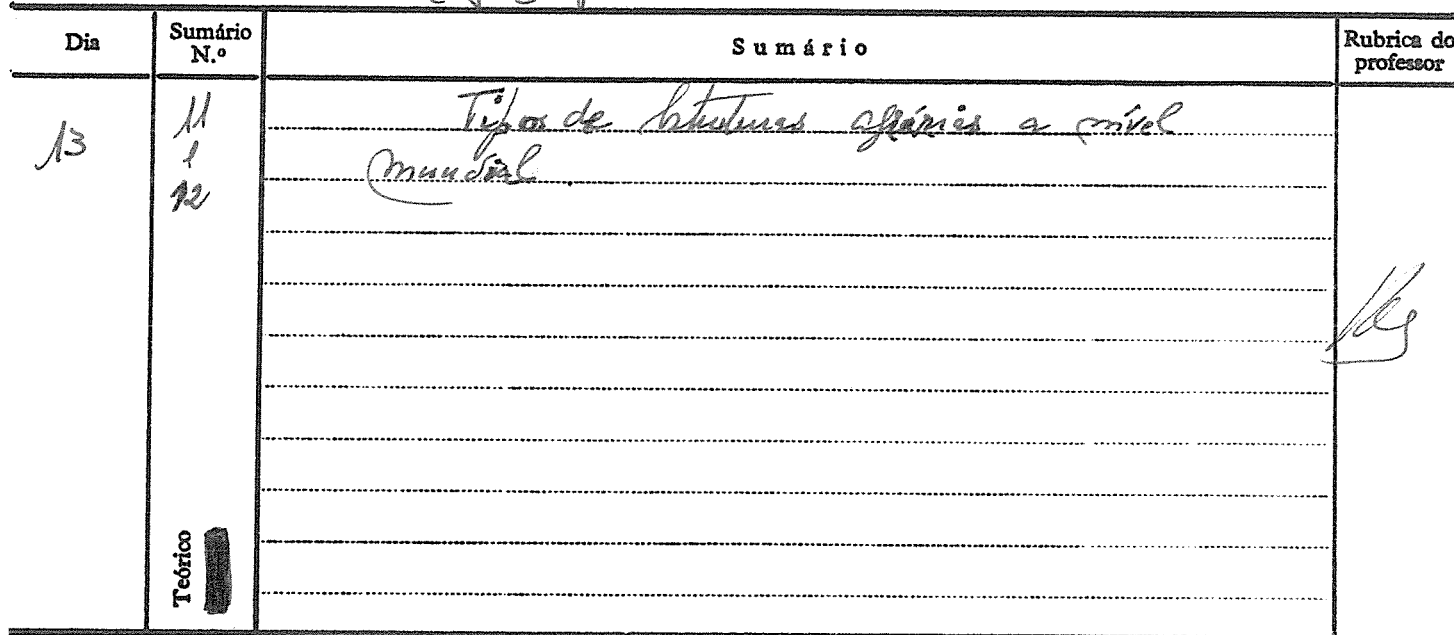 Dia
Sumário N.º
Sumário
Rubrica do professor
13
11
e
12
Tipos de Estruturas agrárias a nível
mundial.
Teórico